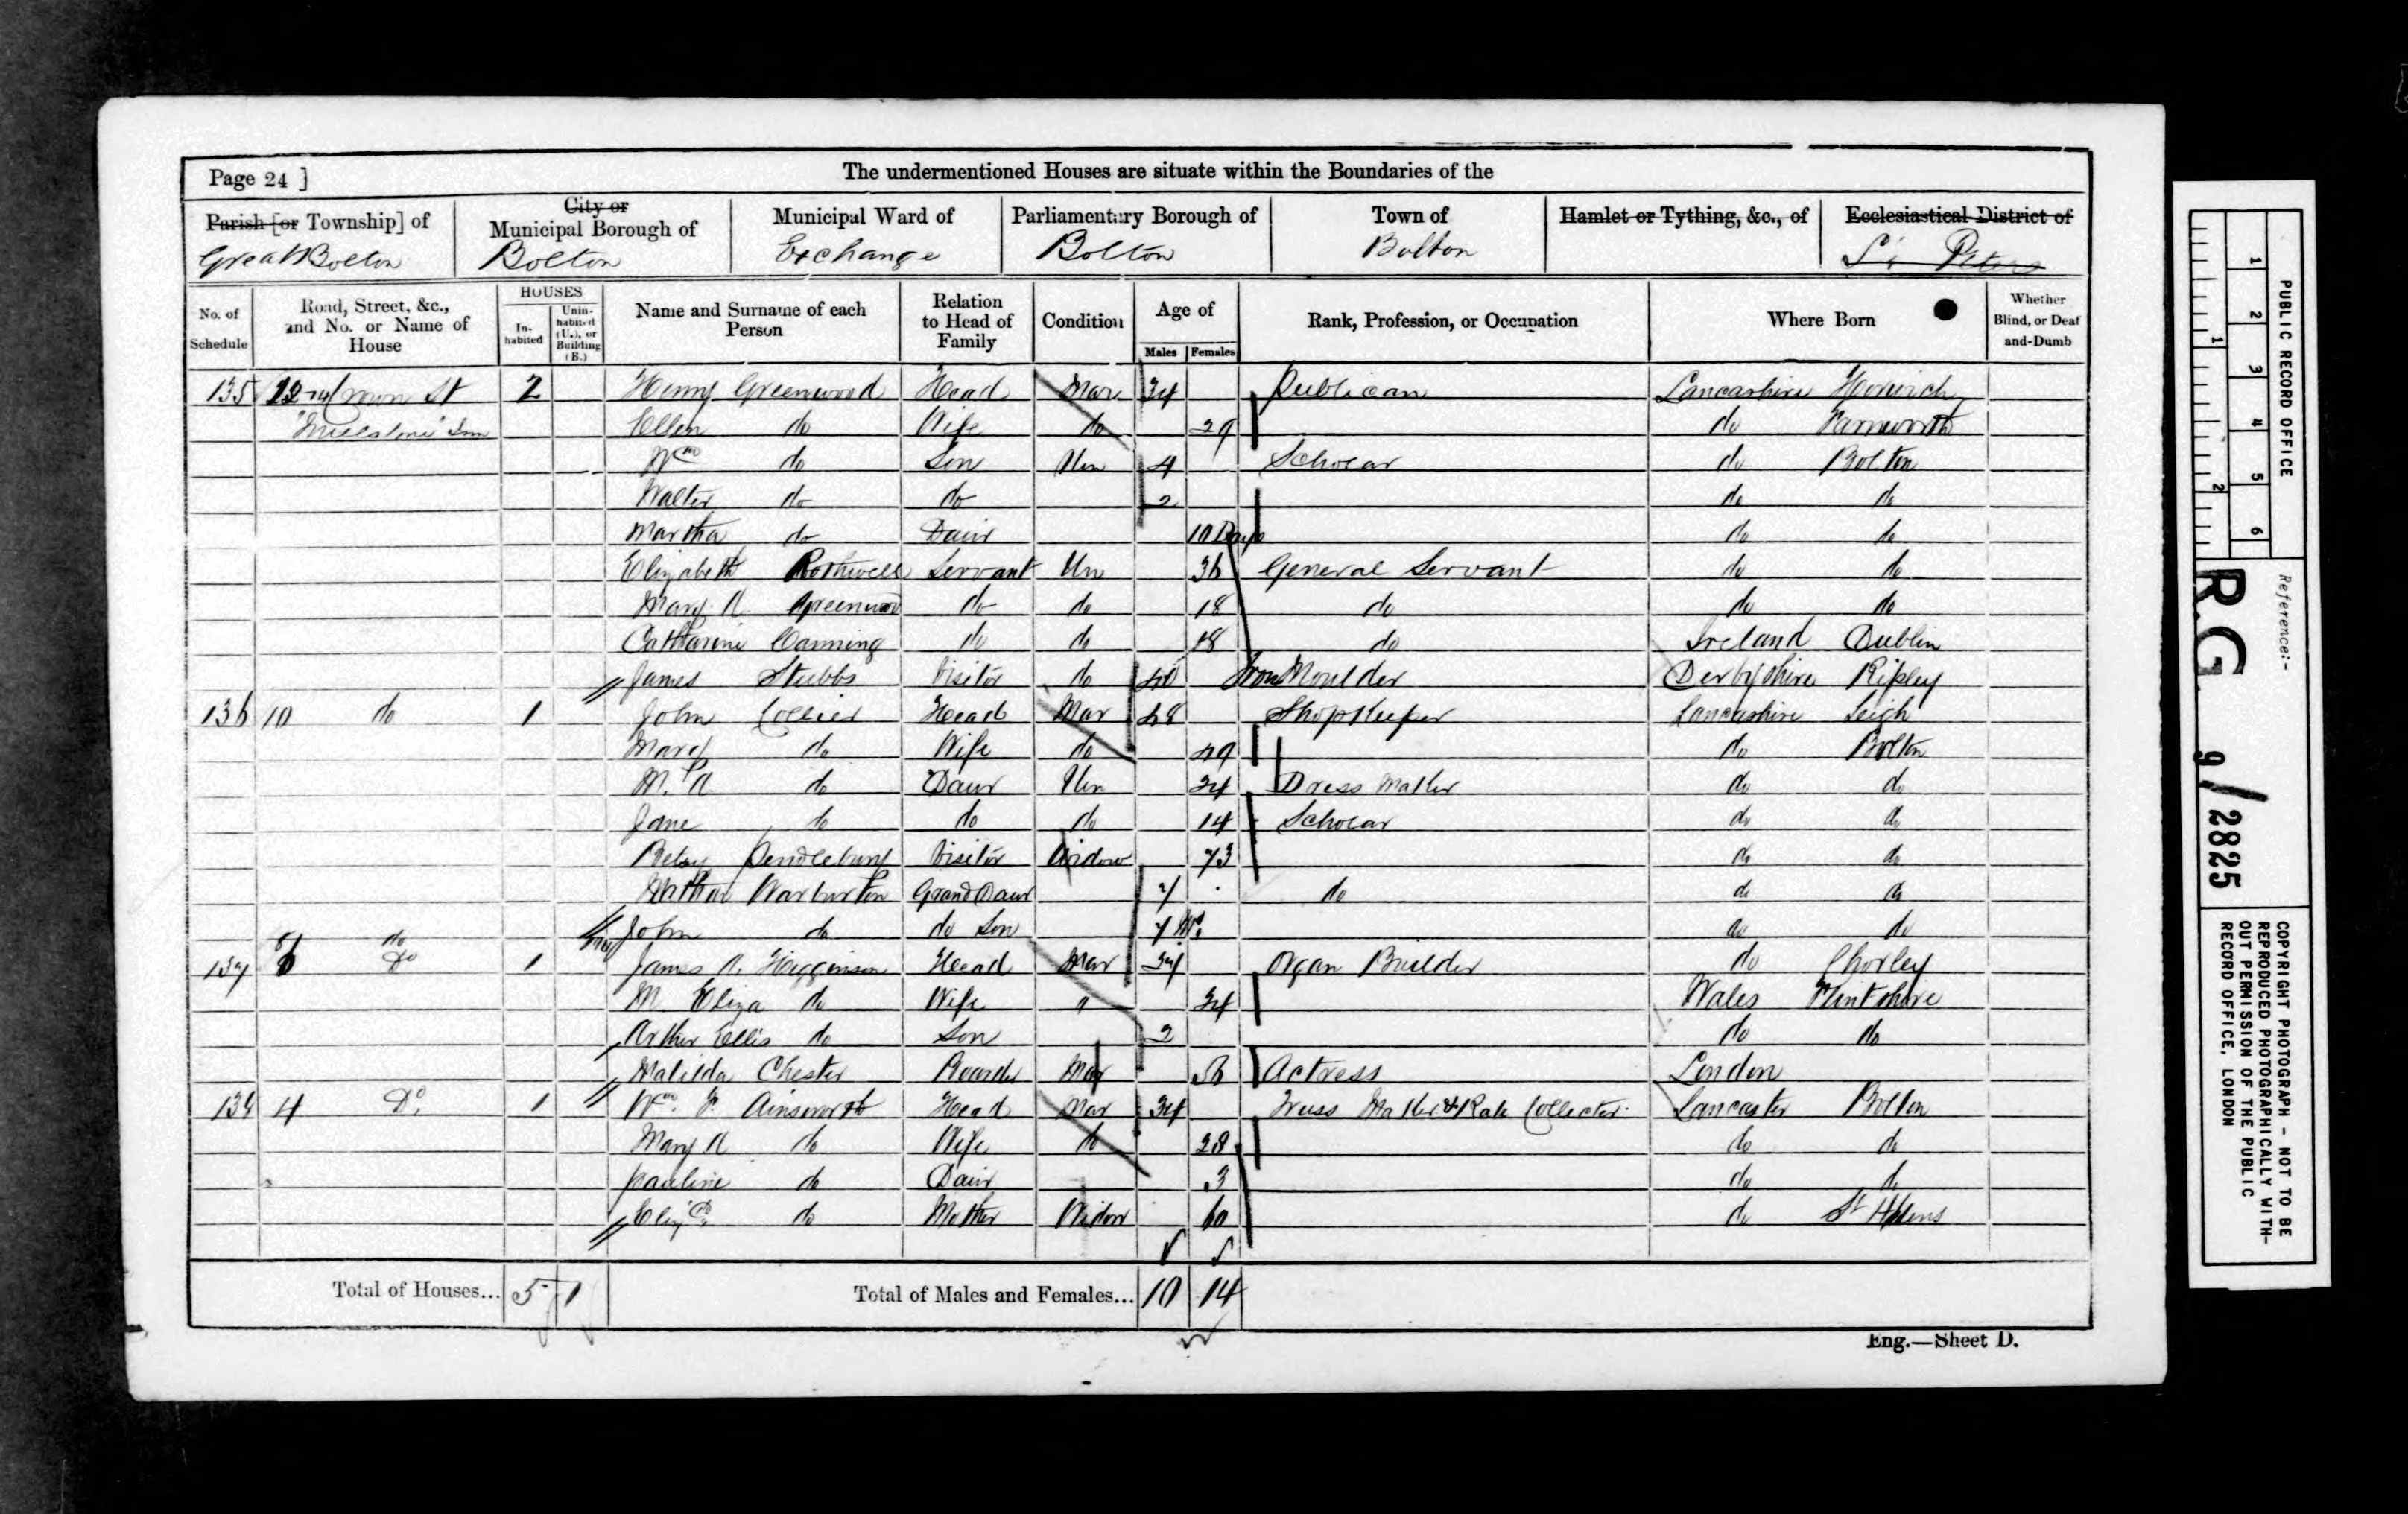 Page 24 ]
The undermentioned Houses are situate within the Boundaries of the
Parish [or Township] of
City or Municipal Borough of
Municipal Ward of
Parliamentary Borough of
Town of
Hamlet or Tything, &c., of
Ecclesiastical District of
Great Bolton
Bolton
Exchange
Bolton
Bolton
St Peters
No. of Schedule
Road, Street, &c., and No. or Name of House
HOUSES
In-habited
Unin-habited (U.), or Building (B.)
Name and Surname of each Person
Relation to Head of Family
Condition
Age of
Males
Females
Rank, Profession, or Occupation
Where Born
Whether Blind, or Deaf and-Dumb
135 St 2 Henry Greenwood Head Mar 34 Publican Lancashire Horwich
Inn Ellen do Wife do 29 do Farnworth
Wm do Son Un 4 Scholar do Bolton
Walter do do 2 do do
Martha do Daur 10 Days do do
Elizabeth Rothwell Servant Un 36 General Servant do do
Mary A Greenwood do do 18 do do do
Catharine Canning do do 18 do Ireland Dublin
James Stubbs Visitor do 40 Iron Moulder Derbyshire Ripley
136 10 do 1 John Collier Head Mar 48 Shop Keeper Lancashire Leigh
Mary do Wife do 49 do Bolton
M. A do Daur Un 24 Dress Maker do do
Jane do do do 14 Scholar do do
Betsy Pendlebury Visitor Widow 73 do do
Warburton Grand Daur do do do
John do do Son do do
137 do Do 1 James A. Higginson Head Mar Organ Builder do Chorley
M. Eliza do Wife " 34 Wales Flintshire
Arthur Ellis do Son 2 do do
Matilda Chester Boarder Mar Actress London
4 Do 1 Wm. F Ainsworth Head Mar 34 Truss Maker & Rate Collector Lancaster Bolton
Mary A do Wife do 28 do do
Pauline do Daur 3 do do
do Mother Widow 60 do St Helens
Total of Houses... 5 1
Total of Males and Females... 10 14
Eng.—Sheet D.
PUBLIC RECORD OFFICE
1 2 3 4 5 6
1 2
Reference:-
R.G. 9/2825
COPYRIGHT PHOTOGRAPH - NOT TO BE
REPRODUCED PHOTOGRAPHICALLY WITH-
OUT PERMISSION OF THE PUBLIC
RECORD OFFICE, LONDON